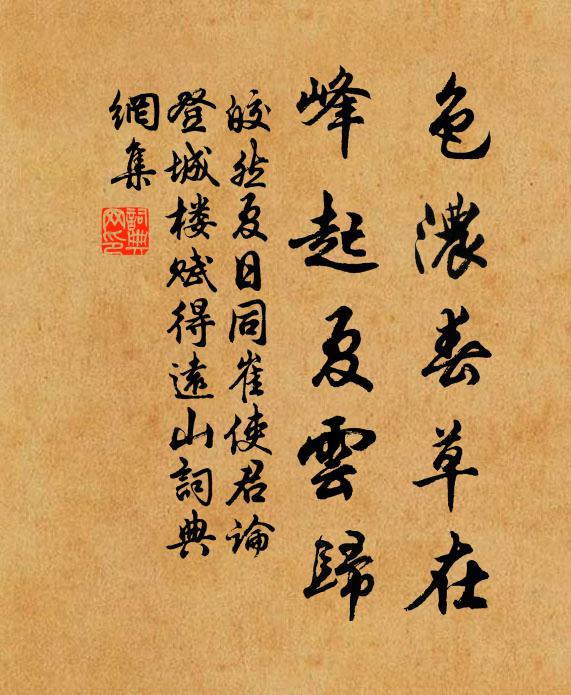 色濃春草在
峰起夏雲歸
皎然夏日同崔使君論
登城楼賦得遠山詞典
網集
詞典
网印